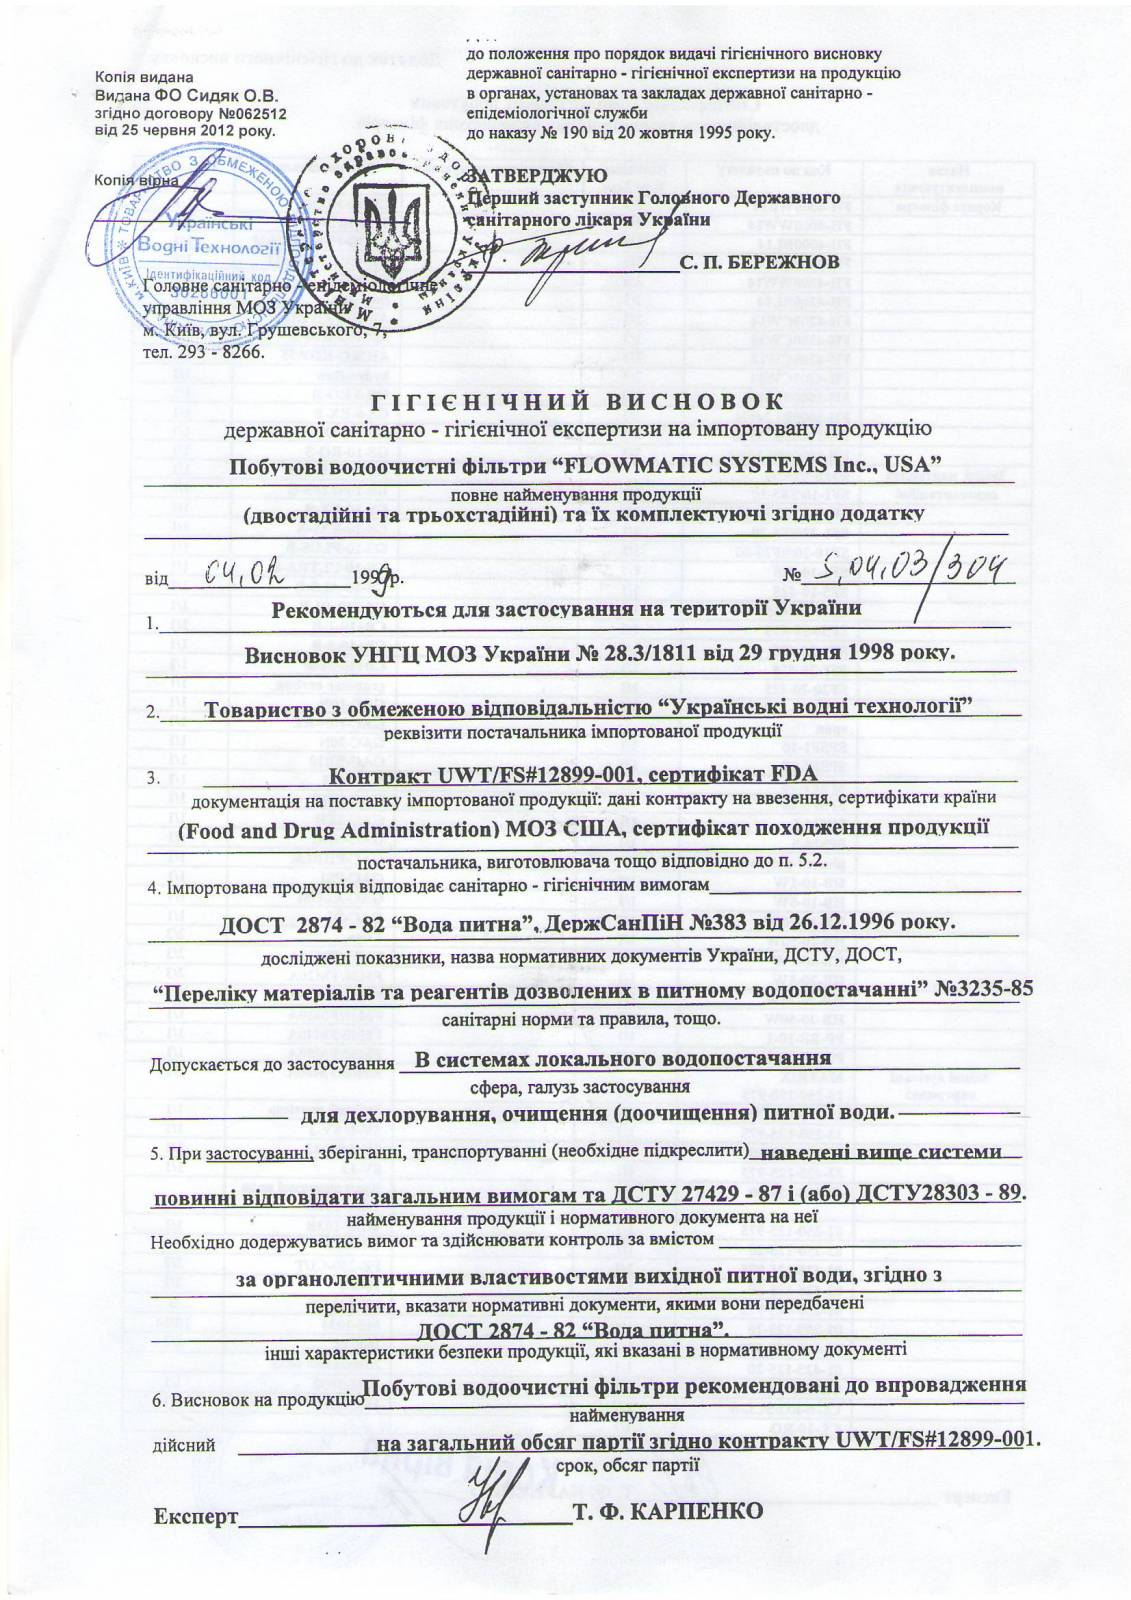 до положення про порядок видачі гігієнічного висновку
державної санітарно - гігієнічної експертизи на продукцію
в органах, установах та закладах державної санітарно -
епідеміологічної служби
до наказу № 190 від 20 жовтня 1995 року.
Копія видана
Видана ФО Сидяк О.В.
згідно договору №062512
від 25 червня 2012 року.
Копія вірна
ЗАТВЕРДЖУЮ
Перший заступник Головного Державного
санітарного лікаря України
С. П. БЕРЕЖНОВ
Українські
Водні Технології
Ідентифікаційний код
30266001
Головне санітарно - епідеміологічне
управління МОЗ України
м. Київ, вул. Грушевського, 7,
тел. 293 - 8266.
ГІГІЄНІЧНИЙ ВИСНОВОК
державної санітарно - гігієнічної експертизи на імпортовану продукцію
Побутові водоочистні фільтри “FLOWMATIC SYSTEMS Inc., USA”
повне найменування продукції
(двостадійні та трьохстадійні) та їх комплектуючі згідно додатку
від 04,02 1999р. № 5,04,03/304
1. Рекомендуються для застосування на території України
Висновок УНГЦ МОЗ України № 28.3/1811 від 29 грудня 1998 року.
2. Товариство з обмеженою відповідальністю “Українські водні технології”
реквізити постачальника імпортованої продукції
3. Контракт UWT/FS#12899-001, сертифікат FDA
документація на поставку імпортованої продукції: дані контракту на ввезення, сертифікати країни
(Food and Drug Administration) МОЗ США, сертифікат походження продукції
постачальника, виготовлювача тощо відповідно до п. 5.2.
4. Імпортована продукція відповідає санітарно - гігієнічним вимогам
ДОСТ 2874 - 82 “Вода питна”, ДержСанПіН №383 від 26.12.1996 року.
досліджені показники, назва нормативних документів України, ДСТУ, ДОСТ,
“Переліку матеріалів та реагентів дозволених в питному водопостачанні” №3235-85
санітарні норми та правила, тощо.
Допускається до застосування В системах локального водопостачання
сфера, галузь застосування
для дехлорування, очищення (доочищення) питної води.
5. При застосуванні, зберіганні, транспортуванні (необхідне підкреслити) наведені вище системи
повинні відповідати загальним вимогам та ДСТУ 27429 - 87 і (або) ДСТУ28303 - 89.
найменування продукції і нормативного документа на неї
Необхідно додержуватись вимог та здійснювати контроль за вмістом
за органолептичними властивостями вихідної питної води, згідно з
перелічити, вказати нормативні документи, якими вони передбачені
ДОСТ 2874 - 82 “Вода питна”.
інші характеристики безпеки продукції, які вказані в нормативному документі
6. Висновок на продукцію Побутові водоочистні фільтри рекомендовані до впровадження
найменування
дійсний на загальний обсяг партії згідно контракту UWT/FS#12899-001.
срок, обсяг партії
Експерт Т. Ф. КАРПЕНКО